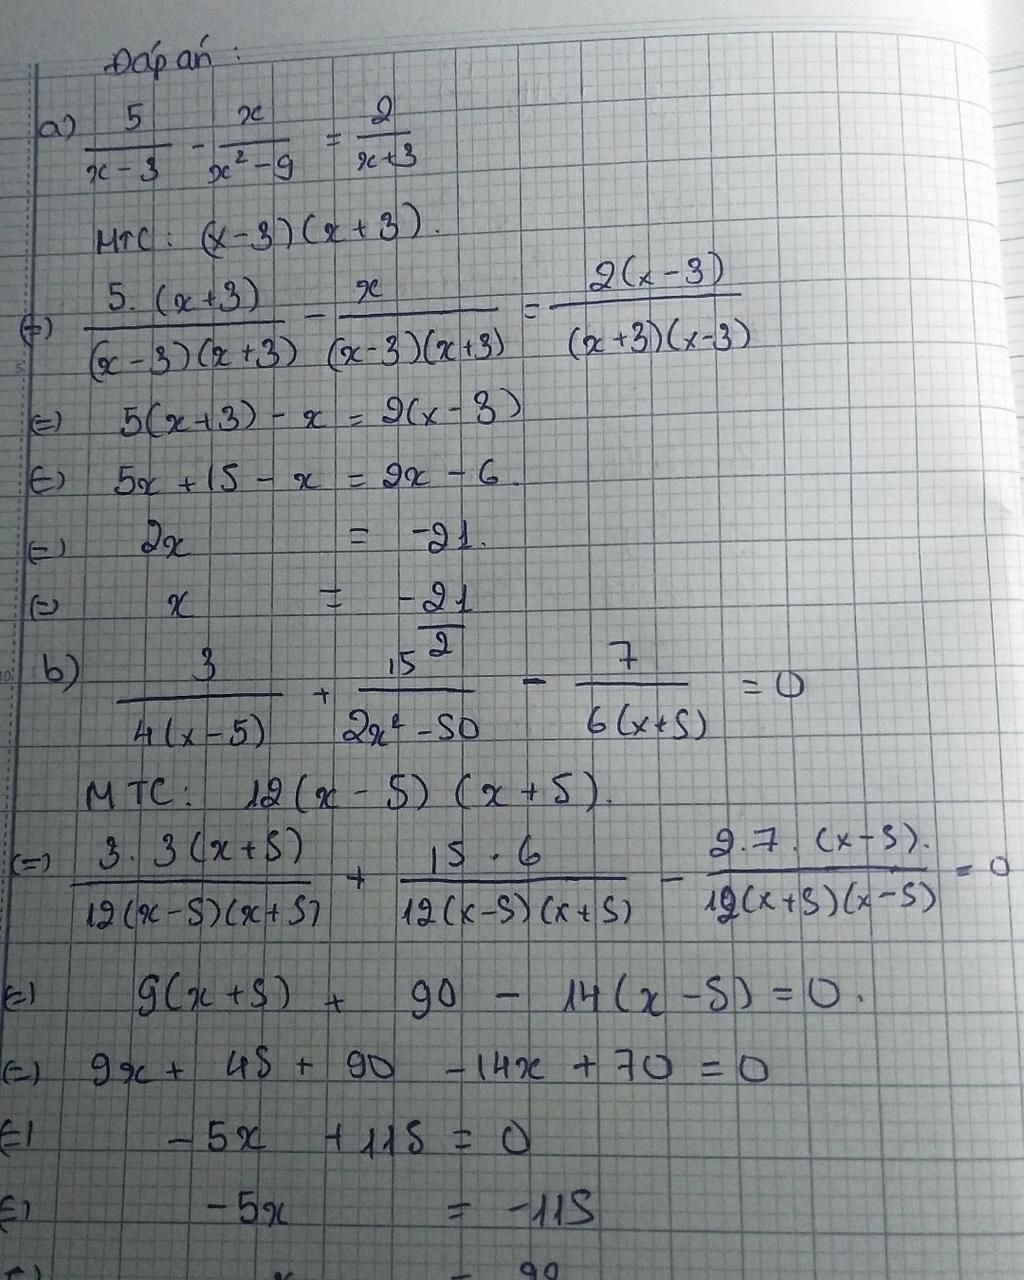 Đáp án :
a) 5/(x-3) - x/(x²-9) = 2/(x+3)
MTC: (x-3)(x+3).
(=) 5.(x+3)/(x-3)(x+3) - x/(x-3)(x+3) = 2(x-3)/(x+3)(x-3)
(=) 5(x+3) - x = 2(x-3)
(=) 5x + 15 - x = 2x - 6.
(=) 2x = -21.
(=) x = -21/2
b) 3/4(x-5) + 15/(2x²-50) - 7/6(x+5) = 0
MTC: 12(x-5)(x+5).
(=) 3.3(x+5)/12(x-5)(x+5) + 15.6/12(x-5)(x+5) - 2.7.(x-5)./12(x+5)(x-5) = 0
(=) 9(x+5) + 90 - 14(x-5) = 0.
(=) 9x + 45 + 90 - 14x + 70 = 0
(=) -5x + 115 = 0
(=) -5x = -115